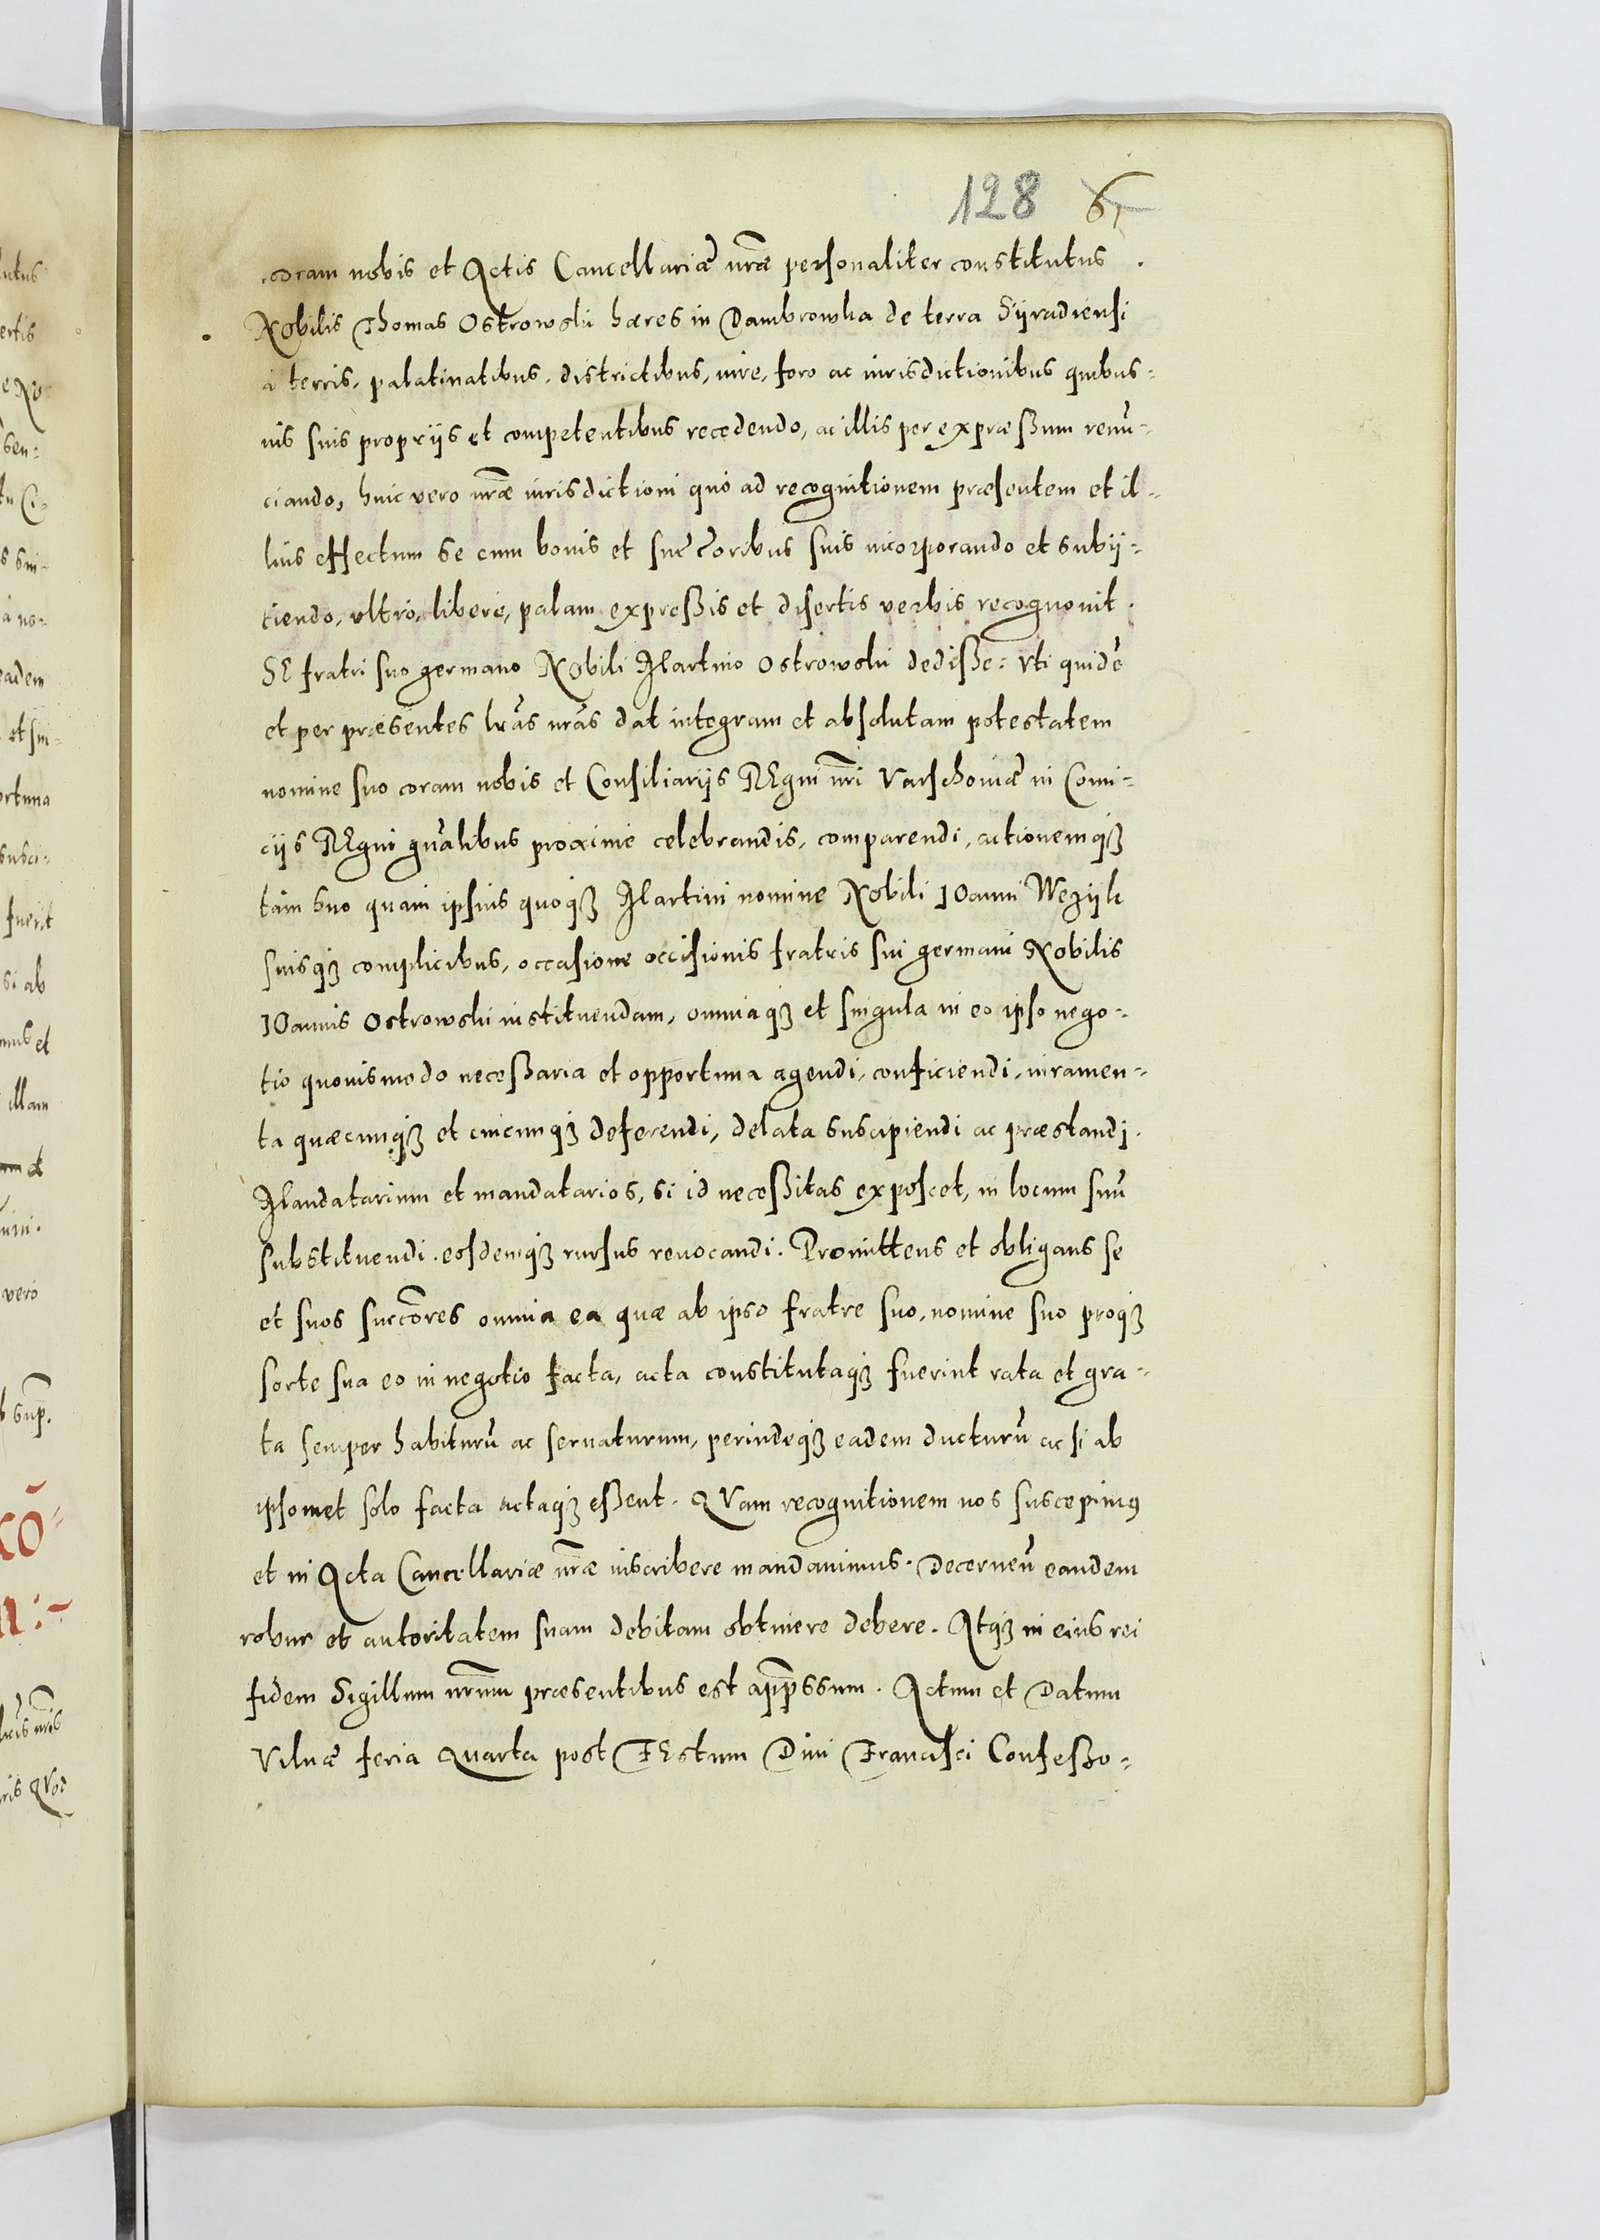 128 61
coram nobis et Actis Cancellariæ nr̃æ personaliter constitutus .
Nobilis Thomas Ostrowski hæres in Dambrowka de terra Syradiensi
à terris, palatinatibus, districtibus, iure, foro ac iurisdictionibus quibus-
uis suis proprijs et competentibus recedendo, ac illis per expræssum renũ-
ciando, huic vero nr̃æ iurisdictioni quò ad recognitionem præsentem et il-
lius effectum se cum bonis et succ̃oribus suis incorporando et subij-
tiendo, vltrò, liberè, palam expressis et disertis verbis recognouit.
SE fratri suo germano Nobili Martino Ostrowski dedisse: Vti quidẽ
et per præsentes lr̃as nr̃as dat integram et absolutam potestatem
nomine suo coram nobis et Consiliarijs REgni nr̃i Varschouiæ in Comi-
cijs REgni gñalibus proximè celebrandis, comparendi, actionemq3
tam suo quàm ipsius quoq3 Martini nomine Nobili IOanni Wezyk
suisq3 complicibus, occasione occisionis fratris sui germani Nobilis
IOannis Ostrowski instituendam, omniaq3 et singula in eo ipso nego-
tio quouismodo necessaria et opportuna agendi, conficiendi, iuramen-
ta quæcunq3 et cuicunq3 deferendi, delata suscipiendi ac præstandj.
Mandatarium et mandatarios, si id necessitas exposcet, in locum suũ
substituendi, eosdemq3 rursus reuocandi. Promittens et obligans se
et suos succ̃ores omnia ea quæ ab ipso fratre suo, nomine suo proq3
sorte sua eo in negotio facta, acta constitutaq3 fuerint rata et gra-
ta semper habiturũ ac seruaturum, perindeq3 eadem ducturũ ac si ab
ipsomet solo facta actaq3 essent. QVam recognitionem nos suscepimus
et in Acta Cancellariæ nr̃æ inscribere mandauimus. Decerneñ eandem
robur et autoritatem suam debitam obtinere debere. Atq3 in eius rei
fidem Sigillum nr̃um præsentibus est app̃ssum. Actum et Datum
Vilnæ feria Quarta post FEstum Diui Francisci Confesso-